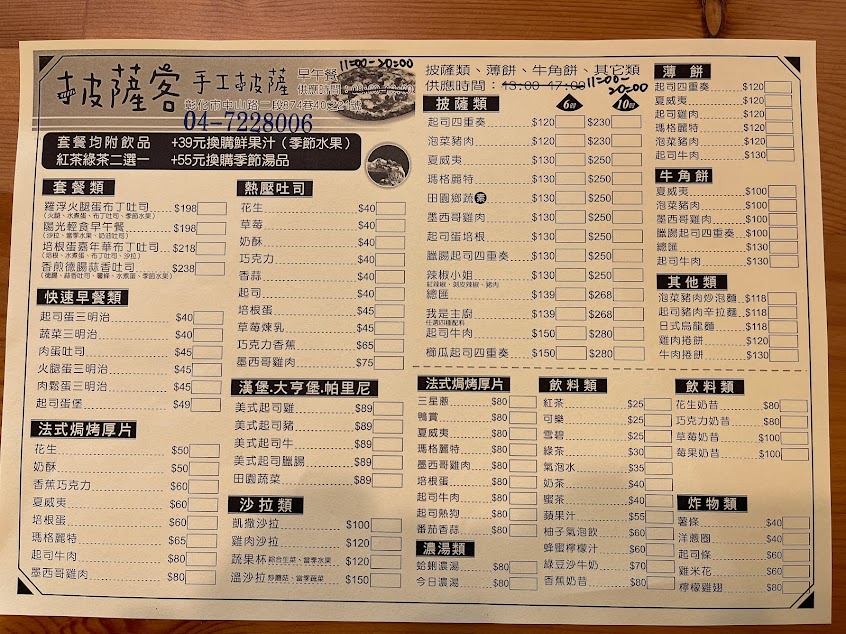 披薩客 手工披薩 早午餐
供應時間：
11:00-20:00
彰化市中山路二段874巷40-221號
04-7228006
套餐均附飲品 +39元換購鮮果汁（季節水果）
紅茶綠茶二選一 +55元換購季節湯品
套餐類
羅浮火腿蛋布丁吐司 $198
(火腿、水煮蛋、布丁吐司、季節水果)
陽光輕食早午餐 $198
(沙拉、當季水果、奶油吐司)
培根蛋嘉年華布丁吐司 $218
(培根、水煮蛋、布丁吐司、沙拉)
香煎德腸蒜香吐司 $238
(德腸、蒜香吐司、薯條、水煮蛋、季節水果)
快速早餐類
起司蛋三明治 $40
蔬菜三明治 $40
肉蛋吐司 $45
火腿蛋三明治 $45
肉鬆蛋三明治 $45
起司蛋堡 $49
法式焗烤厚片
花生 $50
奶酥 $50
香蕉巧克力 $60
夏威夷 $60
培根蛋 $60
瑪格麗特 $65
起司牛肉 $80
墨西哥雞肉 $80
熱壓吐司
花生 $40
草莓 $40
奶酥 $40
巧克力 $40
香蒜 $40
起司 $40
培根蛋 $45
草莓煉乳 $45
巧克力香蕉 $65
墨西哥雞肉 $75
漢堡.大亨堡.帕里尼
美式起司雞 $89
美式起司豬 $89
美式起司牛 $89
美式起司臘腸 $89
田園蔬菜 $89
沙拉類
凱撒沙拉 $100
雞肉沙拉 $120
蔬果杯 綜合生菜、當季水果 $120
溫沙拉 炒蘑菇、當季蔬菜 $150
披薩類、薄餅、牛角餅、其它類
供應時間：13:00-17:00 11:00-20:00
披薩類 6吋 10吋
起司四重奏 $120 $230
泡菜豬肉 $130 $250
夏威夷 $130 $250
瑪格麗特 $130 $250
田園鄉蔬 素 $130 $250
墨西哥雞肉 $130 $250
起司蛋培根 $130 $250
臘腸起司四重奏 $130 $250
辣椒小姐 $130 $250
紅辣椒、剝皮辣椒、豬肉
總匯 $139 $268
我是主廚 $139 $268
任選四種配料
起司牛肉 $150 $280
櫛瓜起司四重奏 $150 $280
薄餅
起司四重奏 $120
夏威夷 $120
起司雞肉 $120
瑪格麗特 $120
泡菜豬肉 $120
起司牛肉 $130
牛角餅
夏威夷 $100
泡菜豬肉 $100
墨西哥雞肉 $100
臘腸起司四重奏 $100
總匯 $130
起司牛肉 $130
其他類
泡菜豬肉炒泡麵 $118
起司豬肉辛拉麵 $118
日式烏龍麵 $118
雞肉捲餅 $120
牛肉捲餅 $130
法式焗烤厚片
三星蔥 $80
鴨賞 $80
夏威夷 $80
瑪格麗特 $80
墨西哥雞肉 $80
培根蛋 $80
起司牛肉 $80
起司熱狗 $80
番茄香蒜 $80
濃湯類
蛤蜊濃湯 $80
今日濃湯 $80
飲料類
紅茶 $25
可樂 $25
雪碧 $25
綠茶 $30
氣泡水 $35
奶茶 $40
蜜茶 $40
蘋果汁 $55
柚子氣泡飲 $60
蜂蜜檸檬汁 $60
綠豆沙牛奶 $70
香蕉奶昔 $80
飲料類
花生奶昔 $80
巧克力奶昔 $80
草莓奶昔 $100
莓果奶昔 $100
炸物類
薯條 $40
洋蔥圈 $40
起司條 $60
雞米花 $60
檸檬雞翅 $80